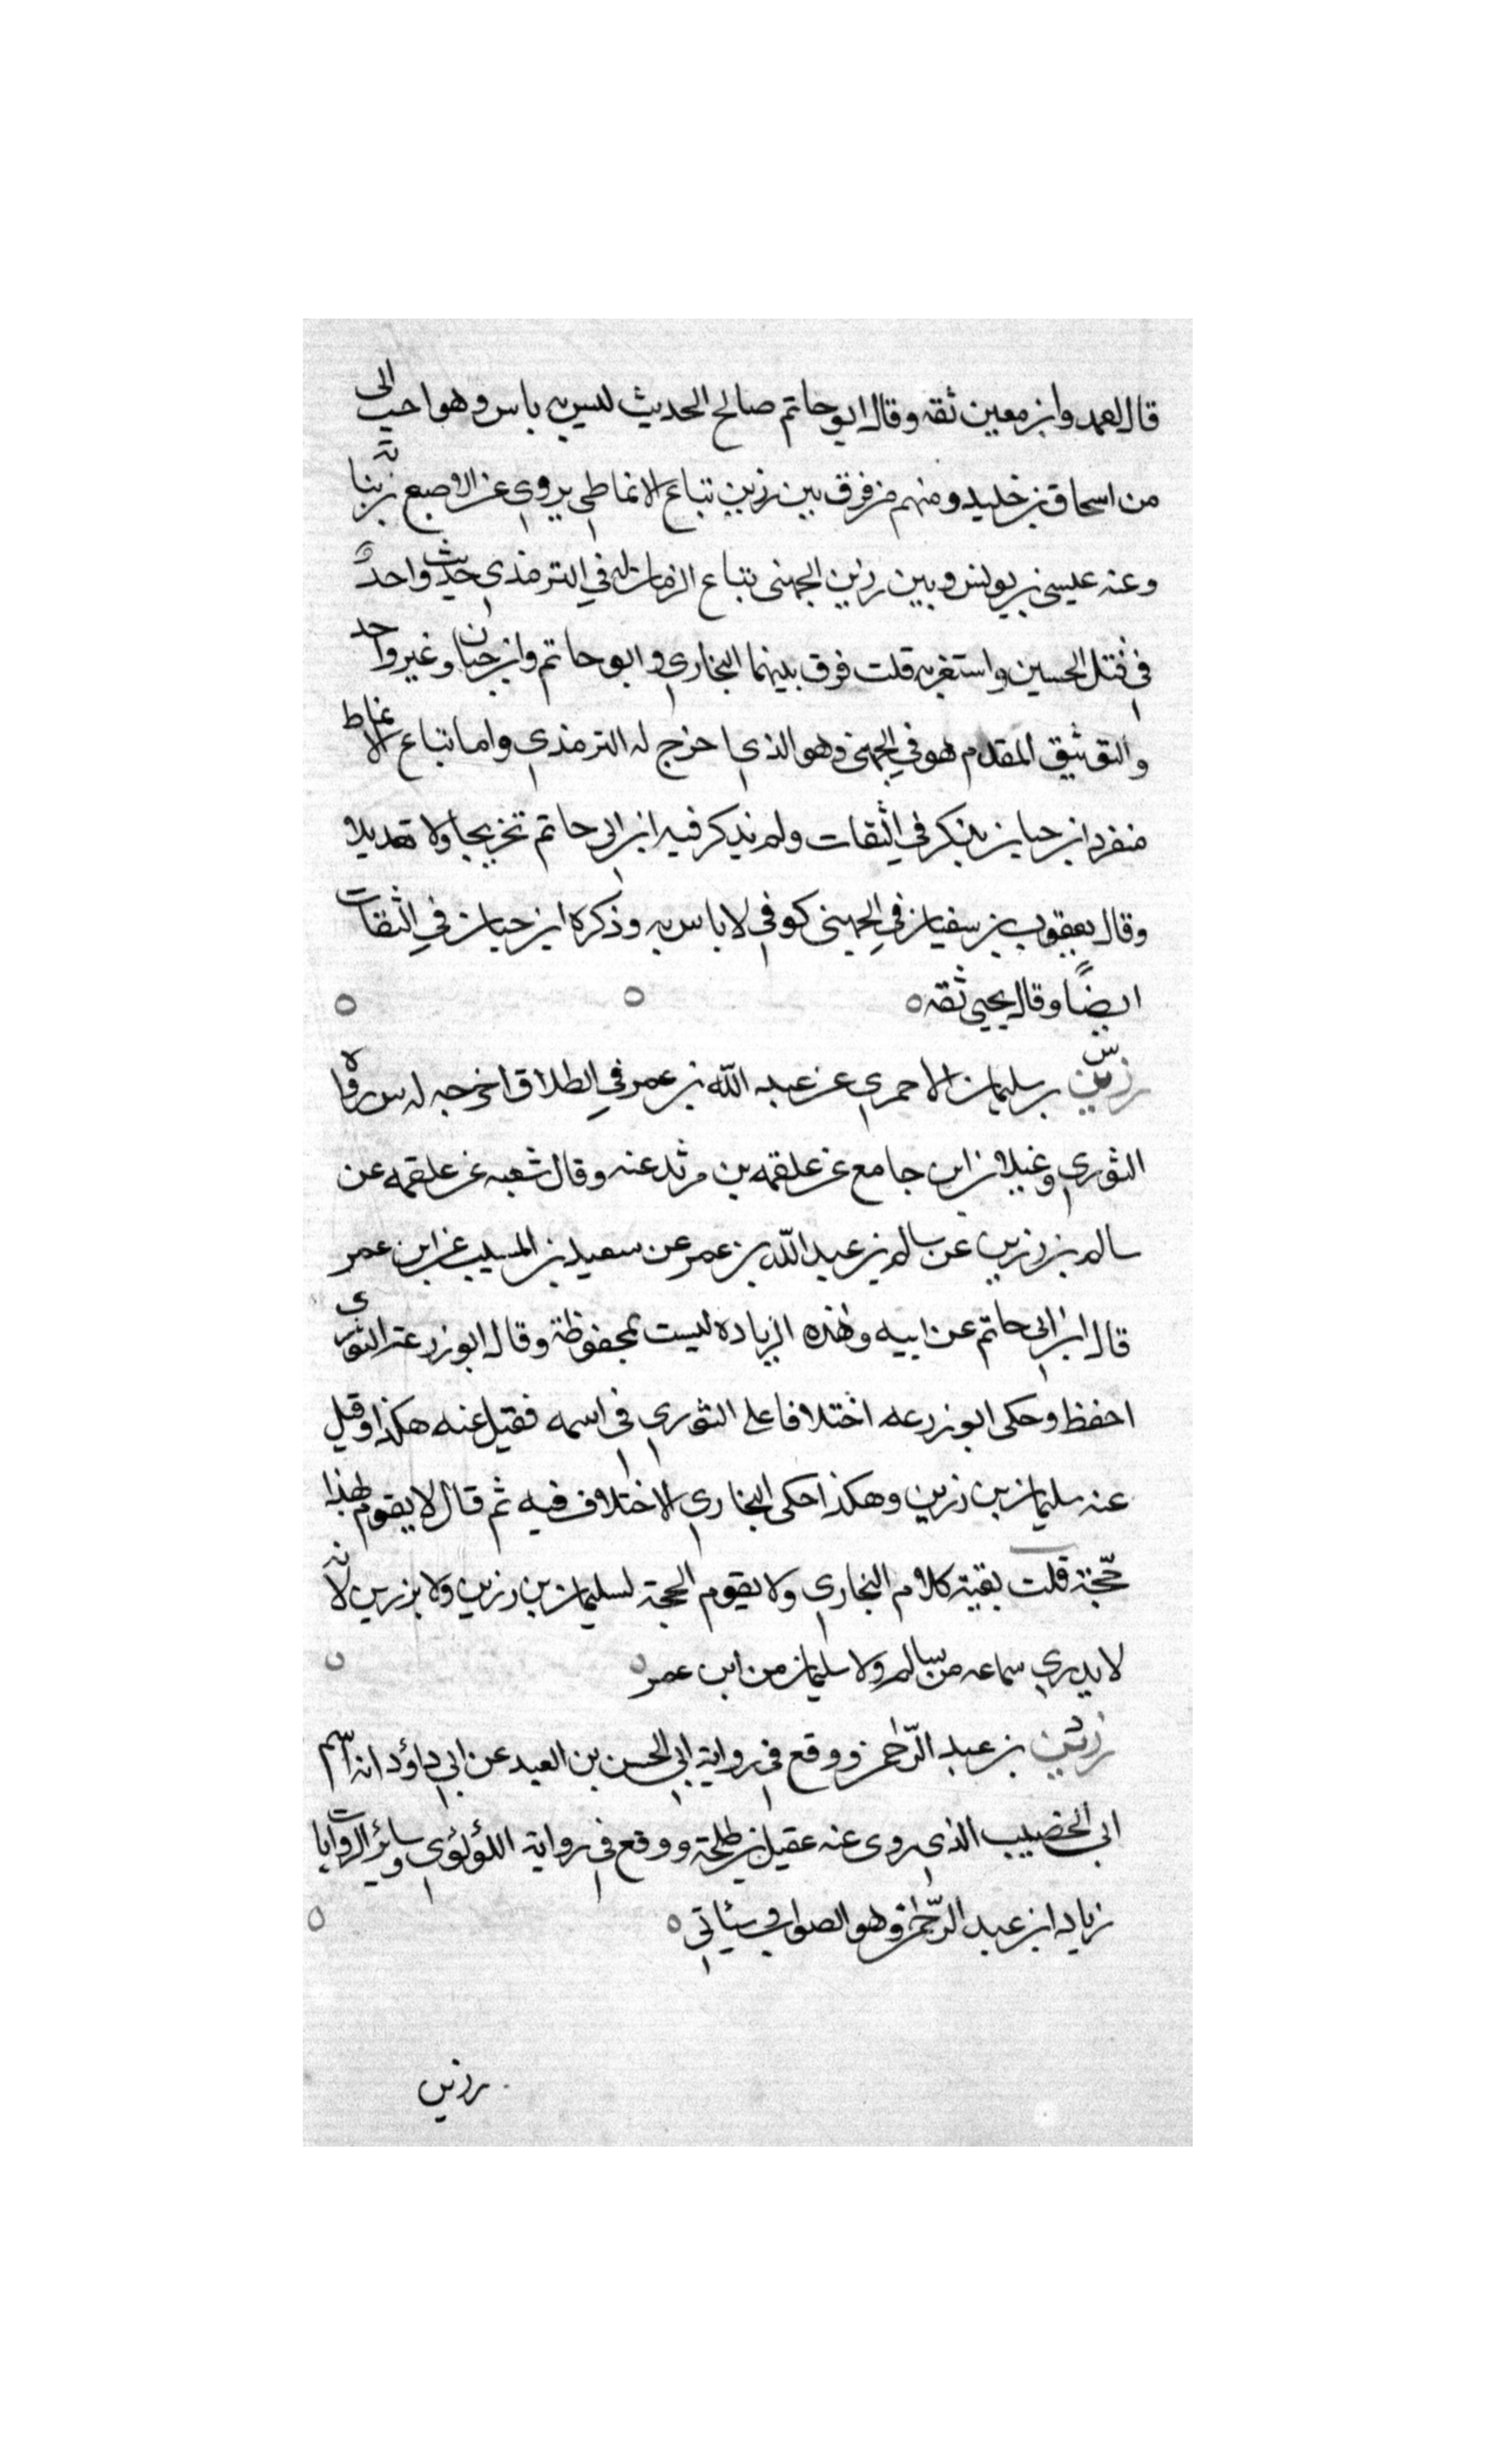 قال احمد وابن معين ثقه وقال ابو حاتم صالح الحديث ليس به باس وهو احب الى
من اسحاق بن خليد ومنهم من فرق بين رزين بياع الانماطى يروي عن الاصبع بن نباته
وعنه عيسى بن يونس وبين رزين الجهنى بياع الرمان له في الترمذي حديث واحدٌ
في قتل الحسين واستغربه قلت فرق بينهما البخاري وابو حاتم وابن حبان وغير واحد
والتوثيق المقدم هو في الجهني وهو الذي اخرج له الترمذي واما بياع الانماط
منفرد ابن حبان بذكر في الثقات ولم يذكر فيه ابن ابى حاتم تخريجا ولا تعديلا
وقال يعقوب بن سفيان في الجهينى كوفي لا باس به وذكره ابن حبان في الثقات
ايضًا وقال يحيى ثقه ٥
رزين بن سليمان الاحمري عن عبد الله بن عمر في الطلاق اخرجه له س رواه
الثوري وغيلان ابن جامع عن علقمه بن مرثد عنه وقال شعبه عن علقمه عن
سالم بن رزين عن سالم بن عبد الله بن عمر عن سعيد بن المسيب عن ابن عمر
قال ابن ابى حاتم عن ابيه وهذه الزياده ليست بمحفوظة وقال ابو زرعة الثوري
احفظ وحكى ابو زرعه اختلافا على الثوري في اسمه فقيل عنه هكذا وقيل
عنه سليمان بن رزين وهكذا حكى البخاري الاختلاف فيه ثم قال لا يقوم بهذا
حجّة قلت بقية كلام البخاري ولا يقوم الحجة لسليمان بن رزين ولا بزرين لانه
لا يدري سماعه من سالم ولا سليمان من ابن عمر ٥
رزين بن عبد الرّحمن ووقع في رواية ابي الحسن بن العبد عن ابي داؤد انه اسم
ابى الخصيب الذي روى عنه عقيل بن طلحة ووقع في رواية اللؤلؤي وسائر الروايات
زياد ابن عبد الرّحمن وهو الصواب وسيأتي ٥
رزين